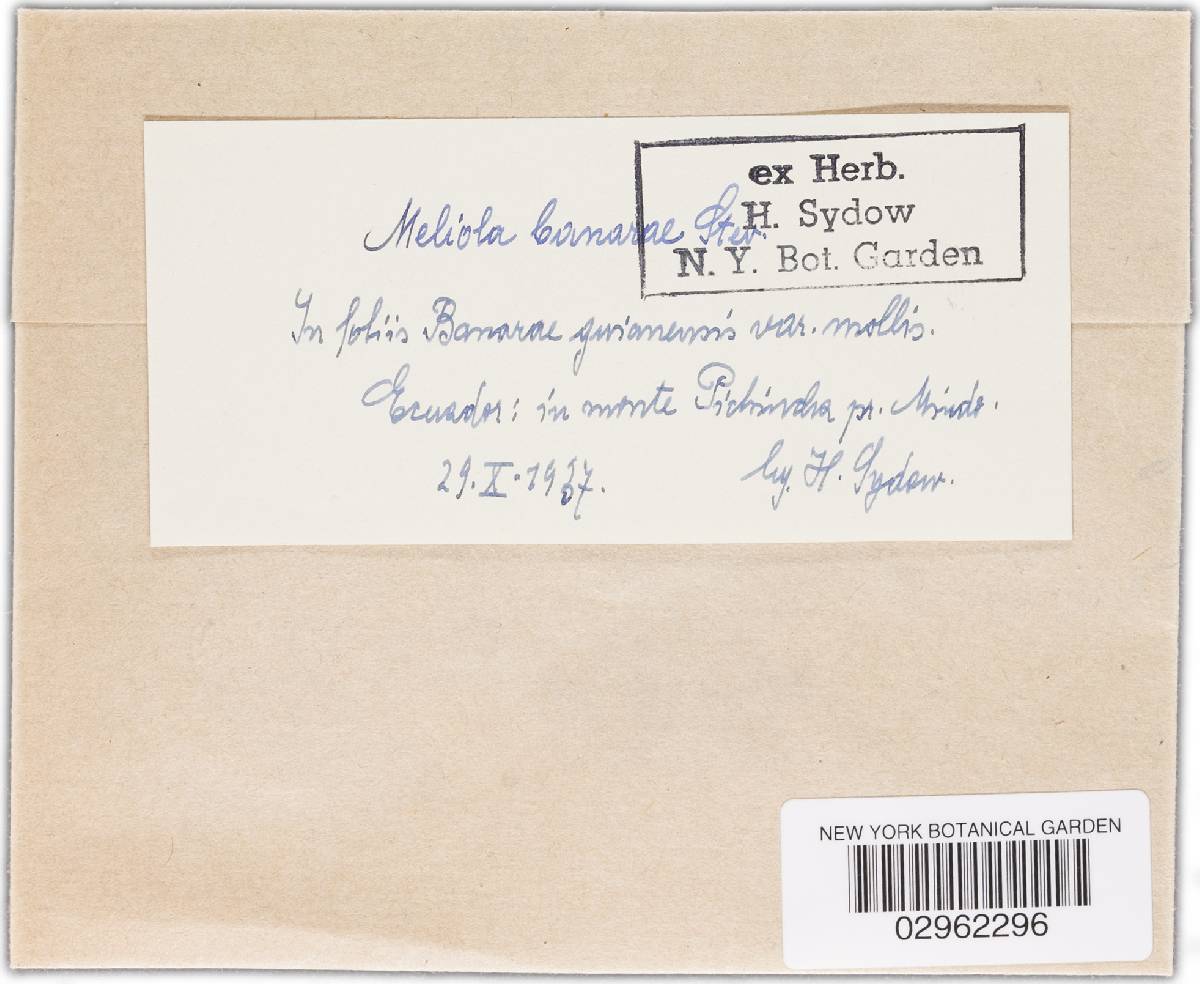 ex Herb.
H. Sydow
N. Y. Bot. Garden
Meliola banarae Stev.
In foliis Banarae guianensis var. mollis.
Ecuador: in monte Pichincha pr. Mindo.
29. X. 1937.
leg. H. Sydow.
NEW YORK BOTANICAL GARDEN
02962296